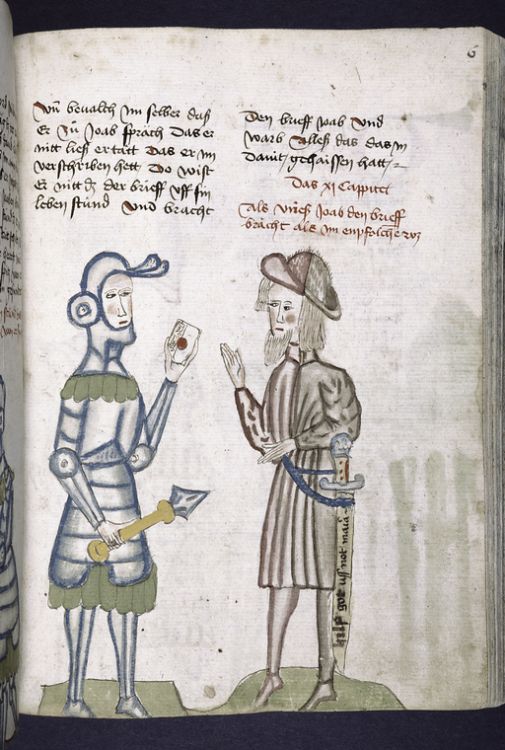 6
Vñ bevalch im selber das
Er zů Joab spräch das er
nitt ließ er tätt das er im
verschriben hett Do wist
Er nitt dz der brieff uff sin
leben stůnd und bracht
Den brieff Joab und
warb alleß das das in
Davit gehaissen hatt
Das XI Cappitel
Als urieß Joab den brieff
brächt als im enpfolche
hilf got uß not maria